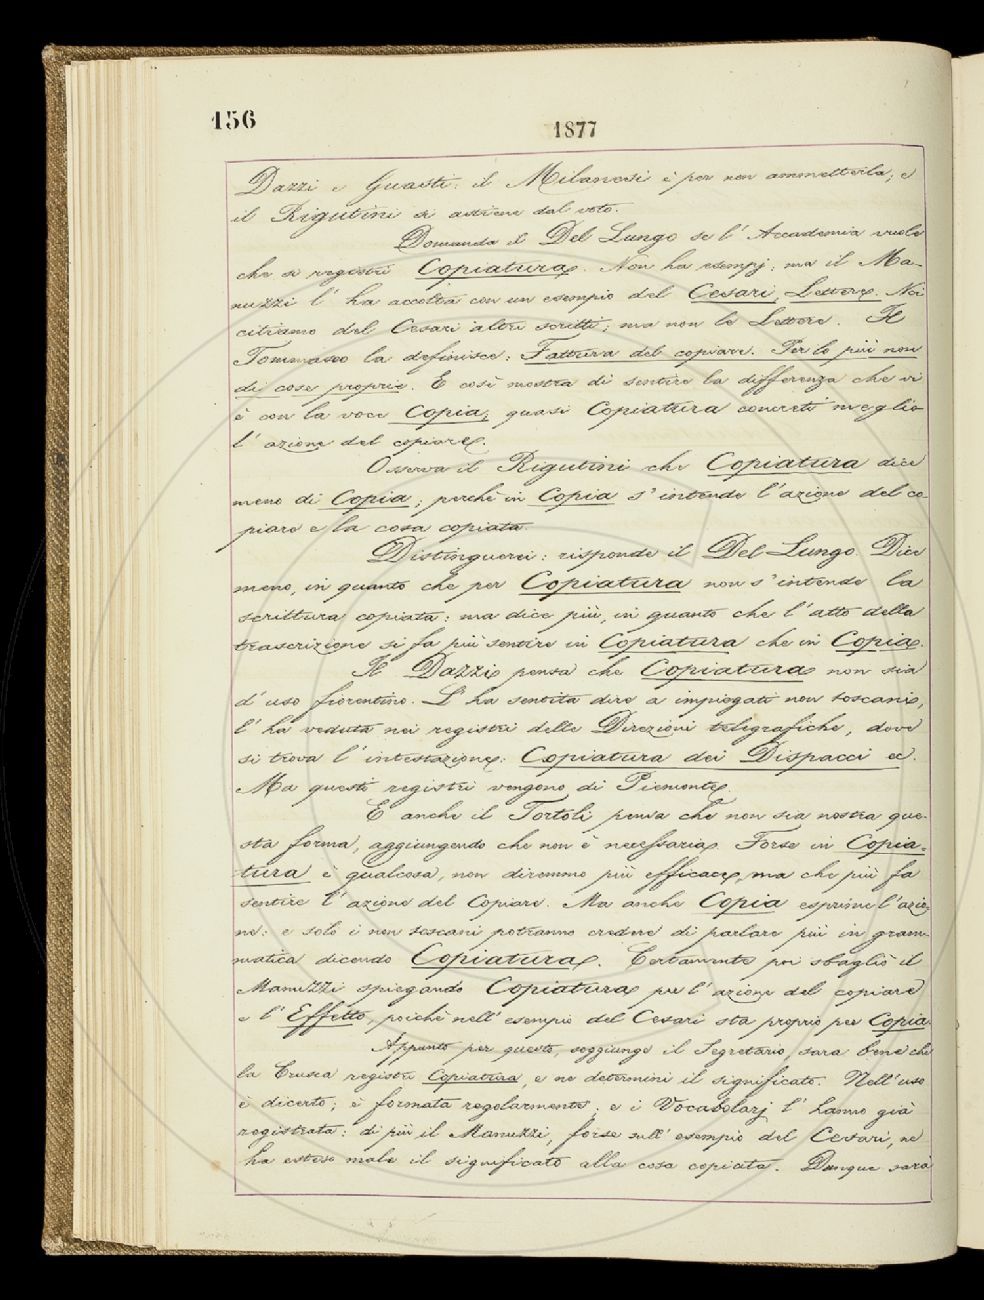 156
1877
Dazzi e Guasti: il Milanesi è per non ammetterla; e
il Rigutini si astiene dal voto.
Domanda il Del Lungo se l' Accademia vuole
che si registri Copiatura. Non ha esempj: ma il Ma-
nuzzi l' ha accolta con un esempio del Cesari, Lettere. Noi
citiamo del Cesari altri scritti; ma non le Lettere. Il
Tommaseo la definisce: Fattura del copiare. Per lo più non
di cose proprie. E così mostra di sentire la differenza che vi
è con la voce Copia, quasi Copiatura concreti meglio
l' azione del copiare.
Osserva il Rigutini che Copiatura dice
meno di Copia; perchè in Copia s' intende l'azione del co-
piare e la cosa copiata.
Distinguerei: risponde il Del Lungo. Dice
meno, in quanto che per Copiatura non s' intende la
scrittura copiata: ma dice più, in quanto che l' atto della
trascrizione si fa più sentire in Copiatura che in Copia.
Il Dazzi pensa che Copiatura non sia
d' uso fiorentino. L' ha sentita dire a impiegati non toscani,
l' ha veduta nei registri delle Direzioni telegrafiche, dove
si trova l' intestazione: Copiatura dei Dispacci ec.
Ma questi registri vengono di Piemonte.
E anche il Tortoli pensa che non sia nostra que-
sta forma, aggiungendo che non è necessaria. Forse in Copia-
tura è qualcosa, non diremmo più efficace, ma che più fa
sentire l' azione del Copiare. Ma anche Copia esprime l' azio-
ne: e solo i non toscani potranno credere di parlare più in gram-
matica dicendo Copiatura. Certamente poi sbagliò il
Manuzzi spiegando Copiatura per l' azione del copiare
e l' Effetto, poichè nell' esempio del Cesari sta proprio per Copia.
Appunto per questo, soggiunge il Segretario, sarà bene che
la Crusca registri Copiatura, e ne determini il significato. Nell' uso
è dicerto; è formata regolarmente; e i Vocabolarj l' hanno già
registrata: di più il Manuzzi, forse sull' esempio del Cesari, ne
ha esteso male il significato alla cosa copiata. Dunque sarà